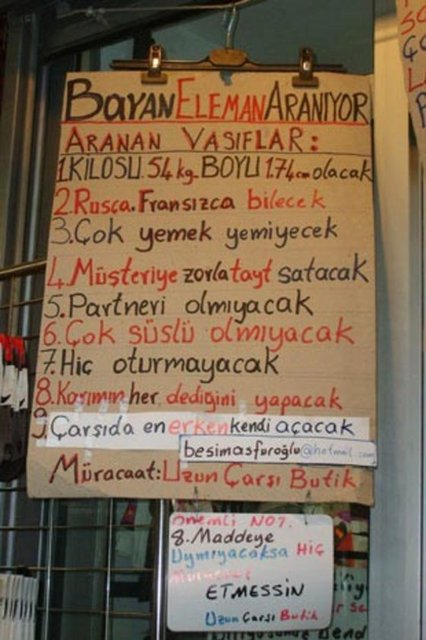 BAYAN ELEMAN ARANIYOR
ARANAN VASIFLAR:
1.KİLOSU.54kg.BOYU 1.74cm olacak
2.Rusça.Fransızca bilecek
3.Çok yemek yemiyecek
4.Müşteriye zorla tayt satacak
5.Partneri olmıyacak
6.Çok süslü olmıyacak
7.Hiç oturmayacak
8.Karımın her dediğini yapacak
9.Çarşıda en erken kendi açacak
besimasfuroğlu@hotmail.com
Müracaat: Uzun Çarşı Butik
ÖNEMLİ NOT.
8.Maddeye
Uymıyacaksa Hiç
ETMESSİN
Uzun Çarşı Butik